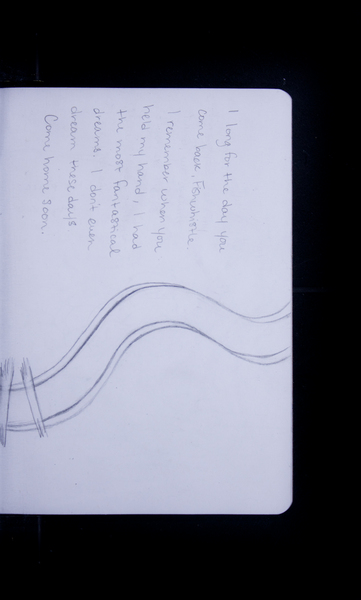 I long for the day you
come back, Foxwhistle.
I remember when you
held my hand, I had
the most fantastical
dreams. I don't even
dream these days
Come home soon.